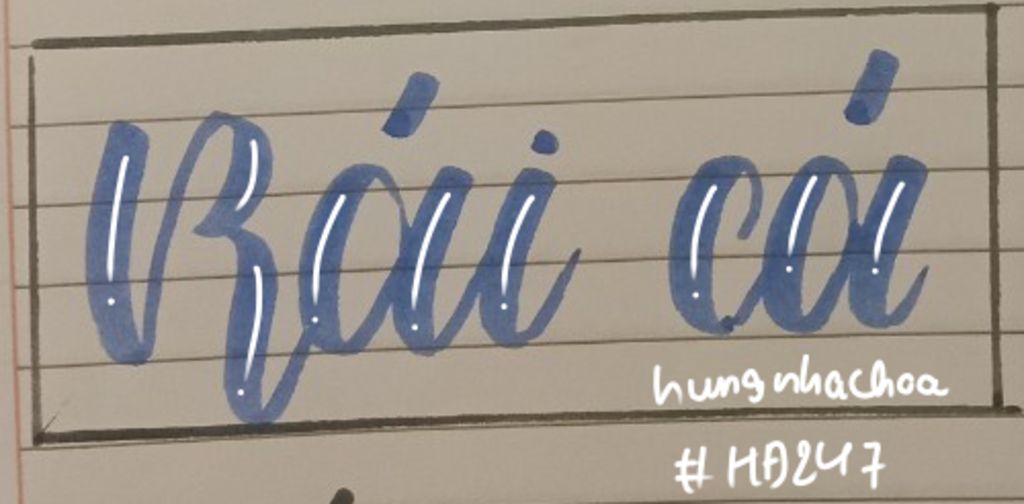 Rái cá
hungnhachoa
#HĐ247